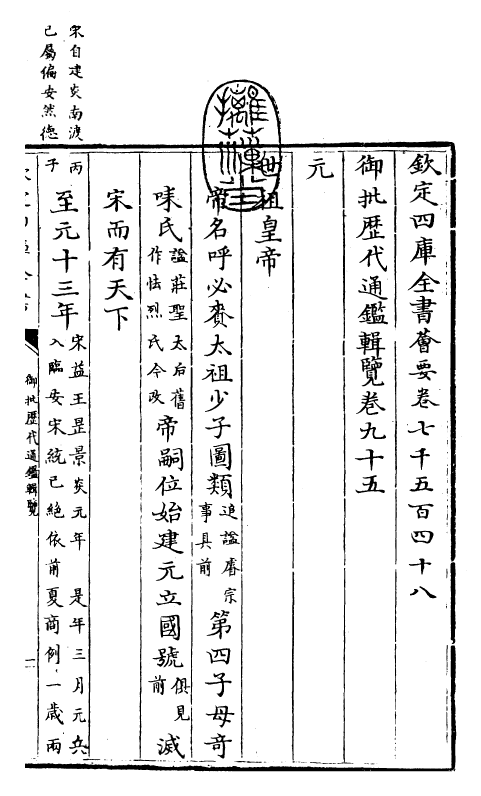 欽定四庫全書薈要卷七千五百四十八
御批歴代通鑑輯覽卷九十五
元
世祖皇帝
帝名呼必賚太祖少子圖類追諡睿宗事具前第四子母竒
唻氏諡莊聖太后舊作怯烈氏今改帝嗣位始建元立國號俱見前滅
宋而有天下
丙子至元十三年宋益王昰景炎元年 是年三月元兵入臨安宋統已絶依前夏商例一歲兩
宋自建炎南渡
已屬偏安然德
御批歴代通鑑輯覽
一